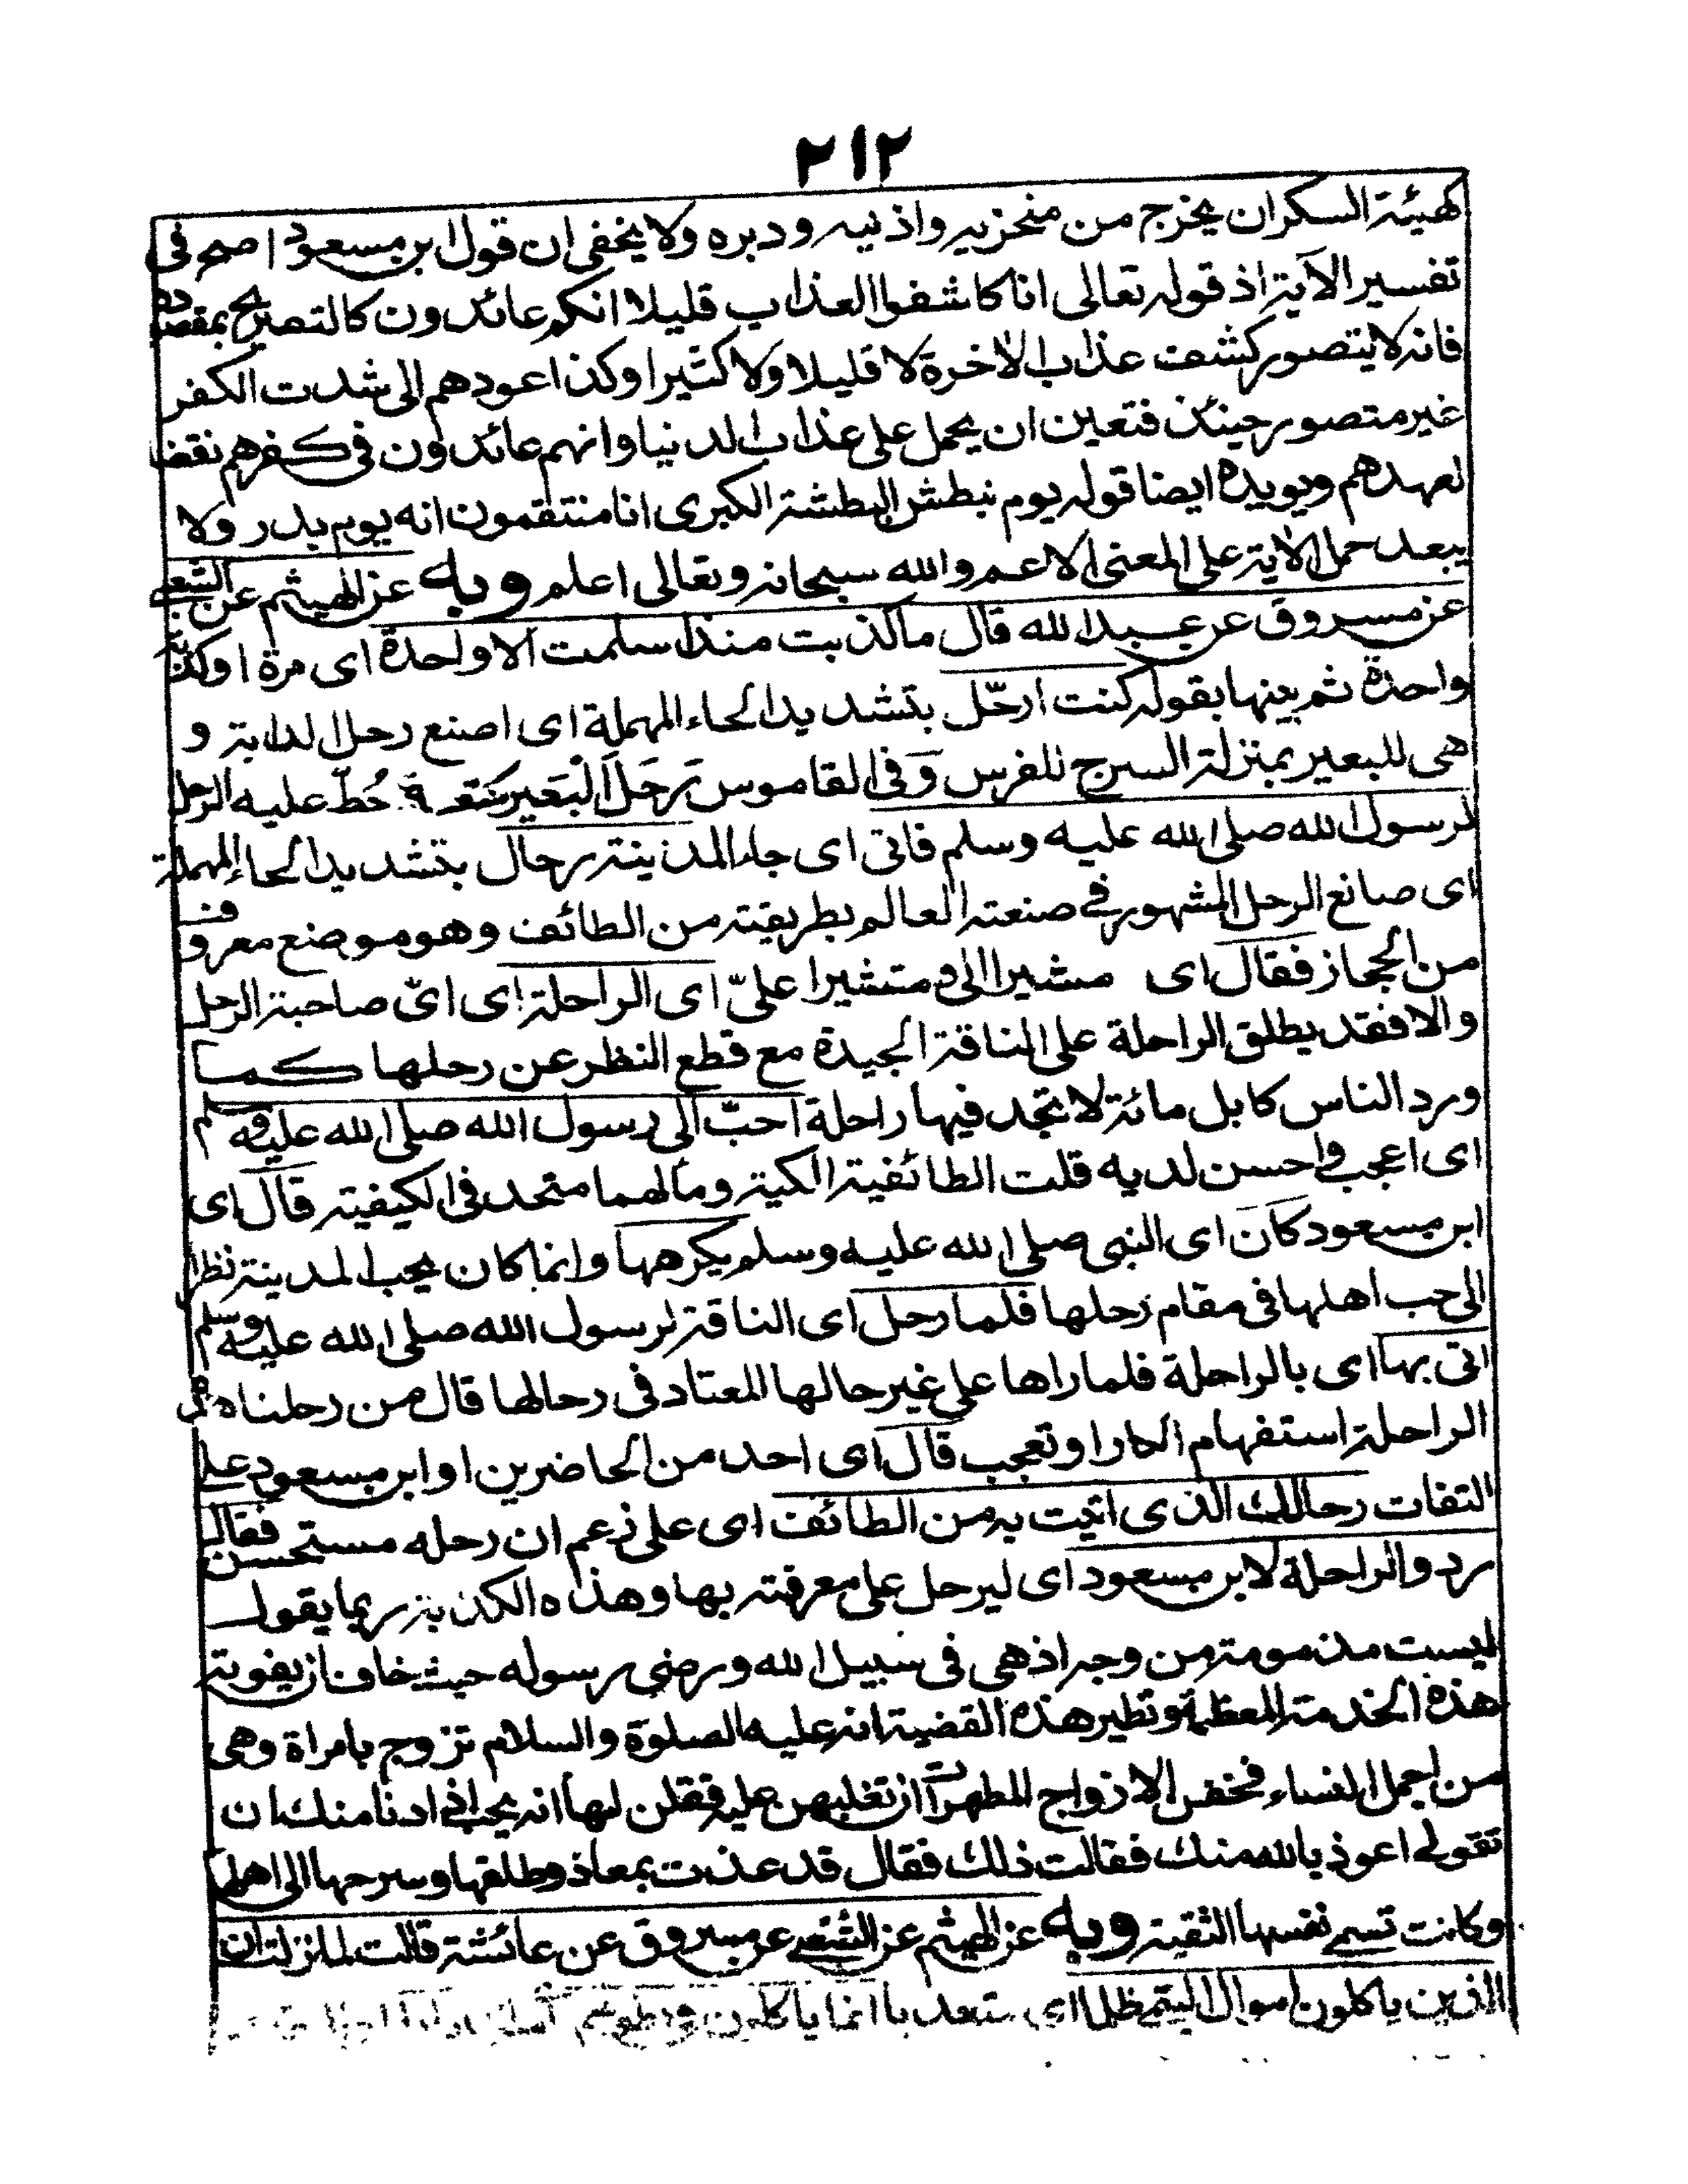 ٢١٢
كهيئة السكران يخرج من منخزيه واذنيه ودبره ولا يخفى ان قول ابن مسعود اصح فى
تفسير الآية اذ قوله تعالى انا كاشفوا العذاب قليلا انكم عائدون كالتصريح بمقصد
فانه لا يتصور كشف عذاب الأخرة لا قليلا ولا كثيرا وكذا عودهم الى شدت الكفر
غير متصور حينئذ فتعين ان يحمل على عذاب الدنيا وانهم عائدون فى كفرهم نقض
لعهدهم ويويده ايضا قوله يوم نبطش البطشة الكبرى انا منتقمون انه يوم بدر ولا
يبعد حمل الأية على المعنى الاعم والله سبحانه وتعالى اعلم وبه عن الهيثم عن الشعبى
عن مسروق عن عبد الله قال ما كذبت منذ اسلمت الا واحدة اى مرة او كذبة
واحدة ثم بينها بقوله كنت ارحّل بتشديد الحاء المهملة اى اصنع رحل الدابة و
هى للبعير بمنزلة السرج للفرس وَفى القاموس رَحَلَ الْبَعِيرَ حُطّ عليه الرحل
لرسول الله صلى الله عليه وسلم فاتى اى جاء المدينة رحال بتشديد الحاء المهملة
اى صانع الرحل المشهور فى صنعته العالم بطريقته من الطائف وهو موضع معروف
من الحجاز فقال اى مشيرا الى ومتشيرا علىّ اى الراحلة اى اىّ صاحبة الرحل
والا فقد يطلق الراحلة على الناقة الجيدة مع قطع النظر عن رحلها كما
ورد الناس كابل مائة لا تجد فيها راحلة احبّ الى رسول الله صلى الله عليه وسلم
اى اعجب واحسن لديه قلت الطائفية المكية ومآلهما متحد فى الكيفية قال اى
ابن مسعود كان اى النبى صلى الله عليه وسلم يكرهها وانما كان يحب المدينة نظرا
الى حب اهلها فى مقام رحلها فلما رحل اى الناقة لرسول الله صلى الله عليه وسلم
اتى بها اى بالراحلة فلما راها على غير حالها المعتاد فى رحالها قال من رحلنا هذه
الراحلة استفهام انكارا وتعجب قال اى احد من الحاضرين او ابن مسعود على
التفات رحالك الذى اتيت به من الطائف اى على زعم ان رحله مستحسن فقال
ردوا الراحلة لابن مسعود اى ليرحل على معرفته بها وهذه الكذبة ربما يقول
ليست مذمومة من وجه اذ هى فى سبيل الله ورضى رسوله حيث خاف ان يفوته
هذه الخدمة المعظمة ونظير هذه القضية انه عليه الصلوة والسلام تزوج بامراة وهى
من اجمل النساء فخفن الازواج المطهرات ان تغلبهن عليه فقلن لها انه يحب اذا دنا منك ان
تقولى اعوذ بالله منك فقالت ذلك فقال قد عذت بمعاذ وطلقها وسرحها الى اهلها
وكانت تسمى نفسها الشقية وبه عن الهيثم عن الشعبى عن مسروق عن عائشة قالت لما نزلت ان
الذين ياكلون اموال اليتمى ظلما اى ستعديا انما ياكلون